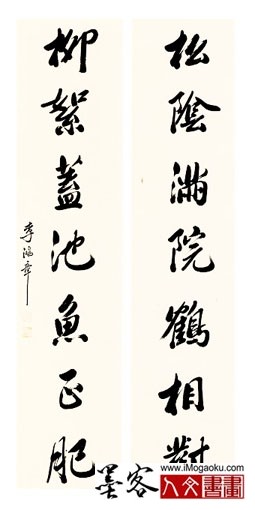 松陰滿院鶴相對
柳絮蓋池魚正肥
李鴻章
墨客
www.iMogaoku.com
人文書畫